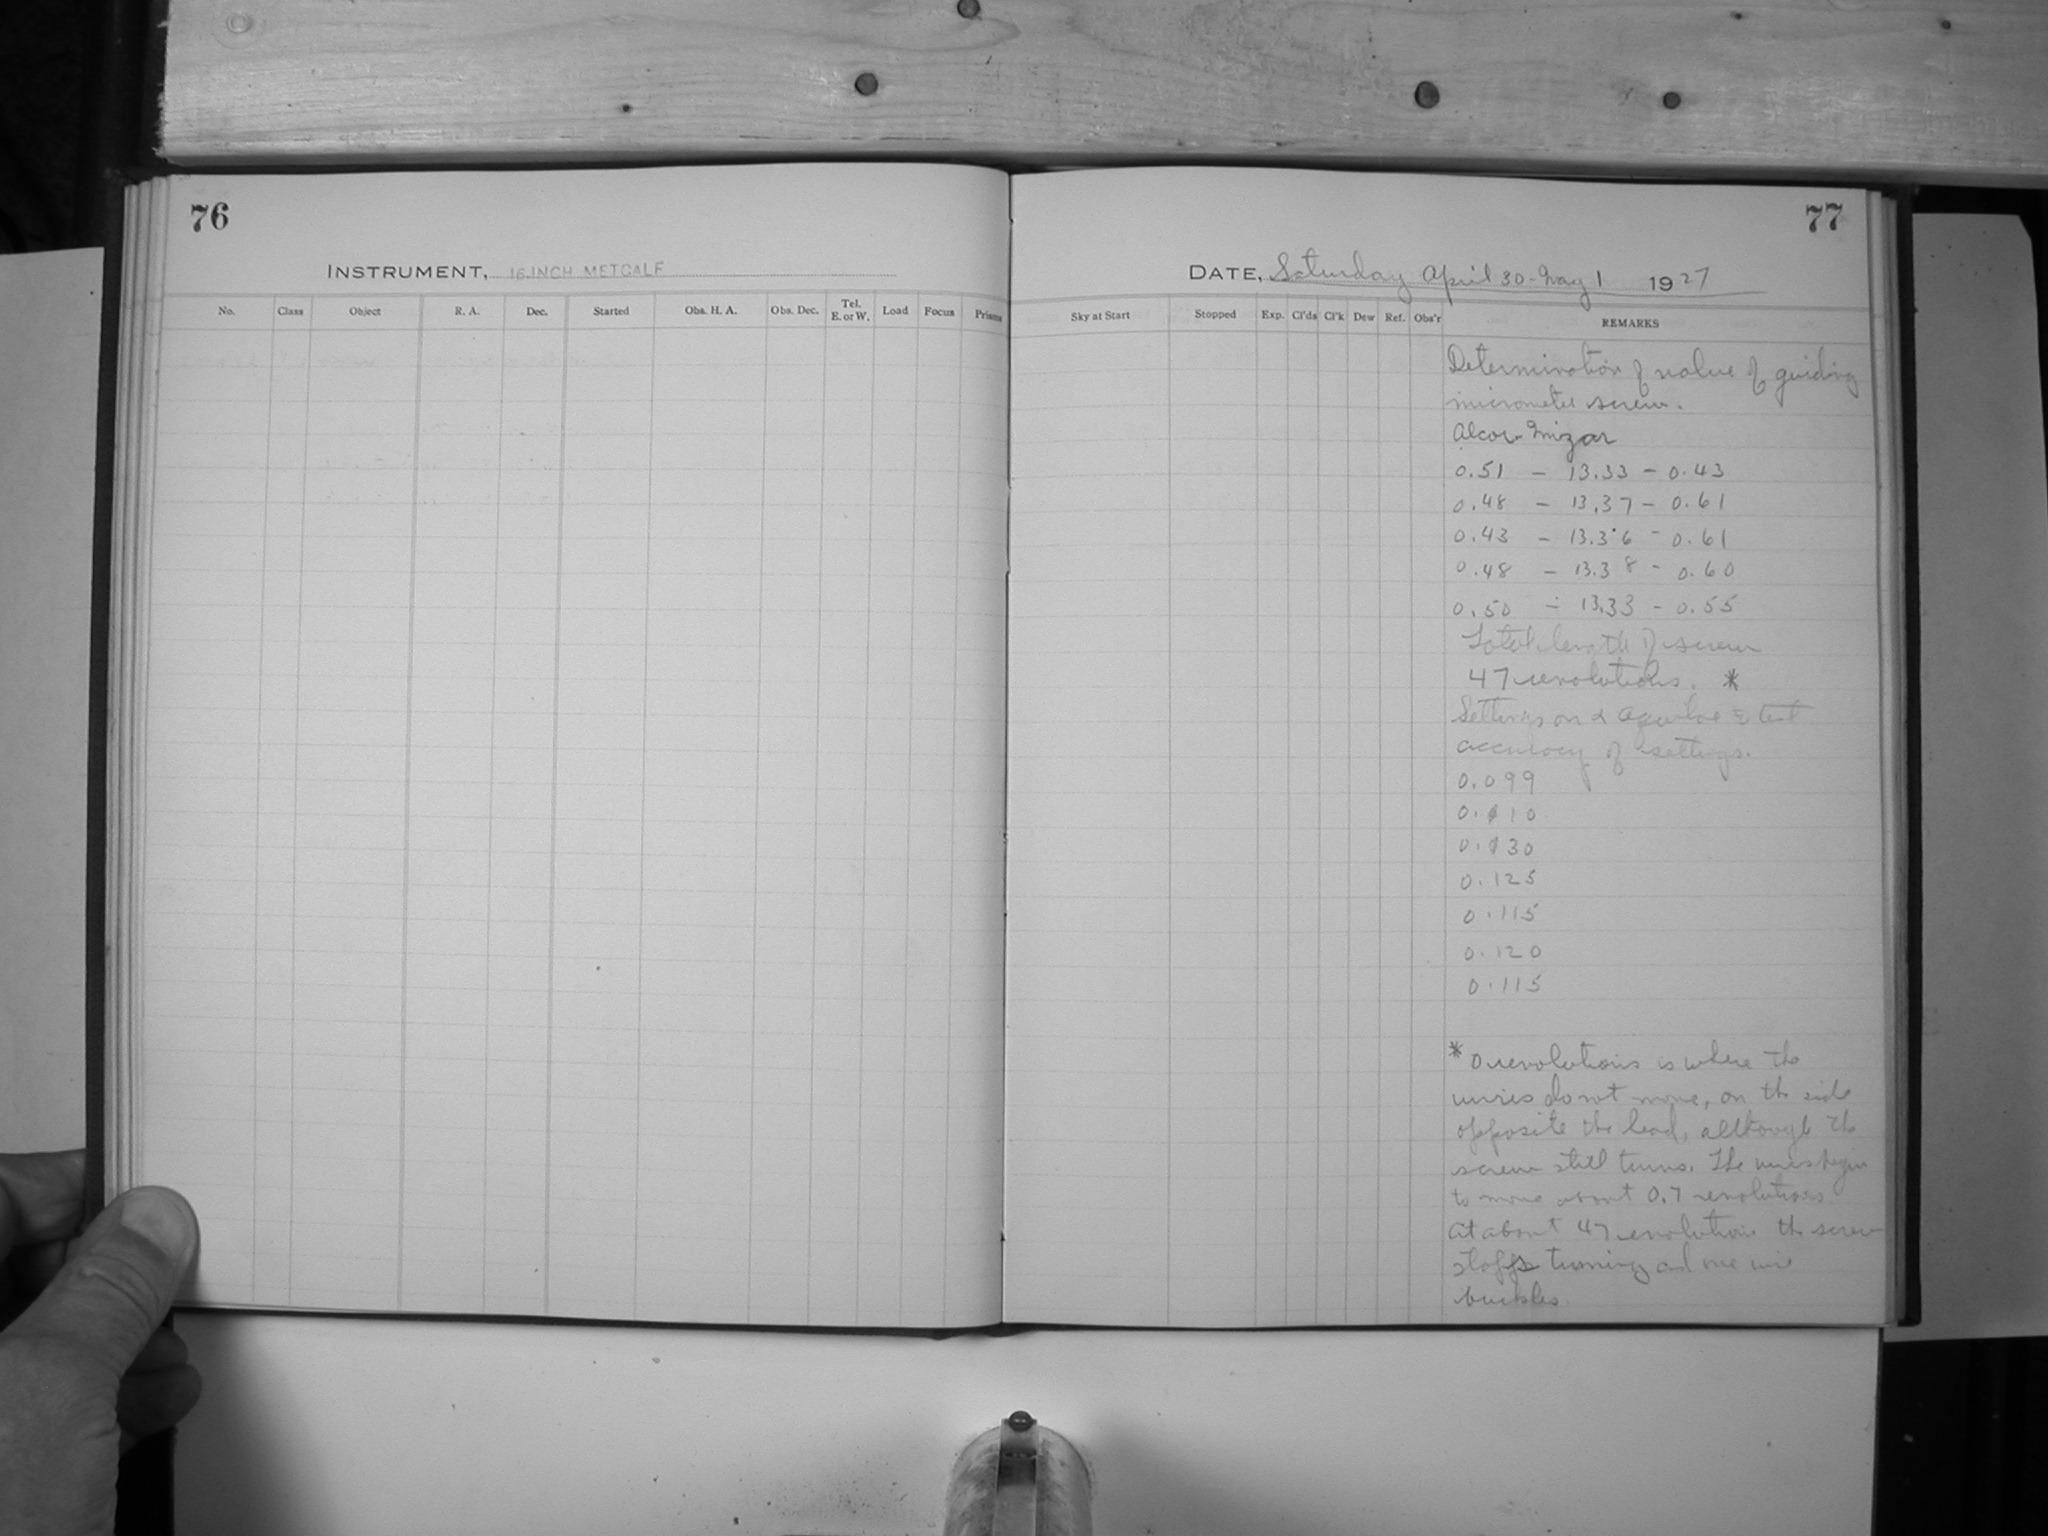 76
INSTRUMENT, 16 INCH METCALF
No. Class Object R. A. Dec. Started Obs. H. A. Obs. Dec. Tel. E. or W. Load Focus Prisms
77
DATE, Saturday April 30 - May 1 1927
Sky at Start Stopped Exp. Cl'ds Cl'k Dew Ref. Obs'r REMARKS
Determination of value of guiding
micrometer screw.
Alcor - Mizar
0.51 - 13.33 - 0.43
0.48 - 13.37 - 0.61
0.43 - 13.36 - 0.61
0.48 - 13.38 - 0.60
0.50 - 13.33 - 0.55
Total length of screw
47 revolutions. *
Settings on α Aquilae to test
accuracy of settings.
0.099
0.110
0.130
0.125
0.115
0.120
0.115
* 0 revolutions is where the
wires do not move, on the side
opposite the head, although the
screw still turns. The wires begin
to move about 0.7 revolutions.
At about 47 revolutions the screw
stops turning and one wire
buckles.